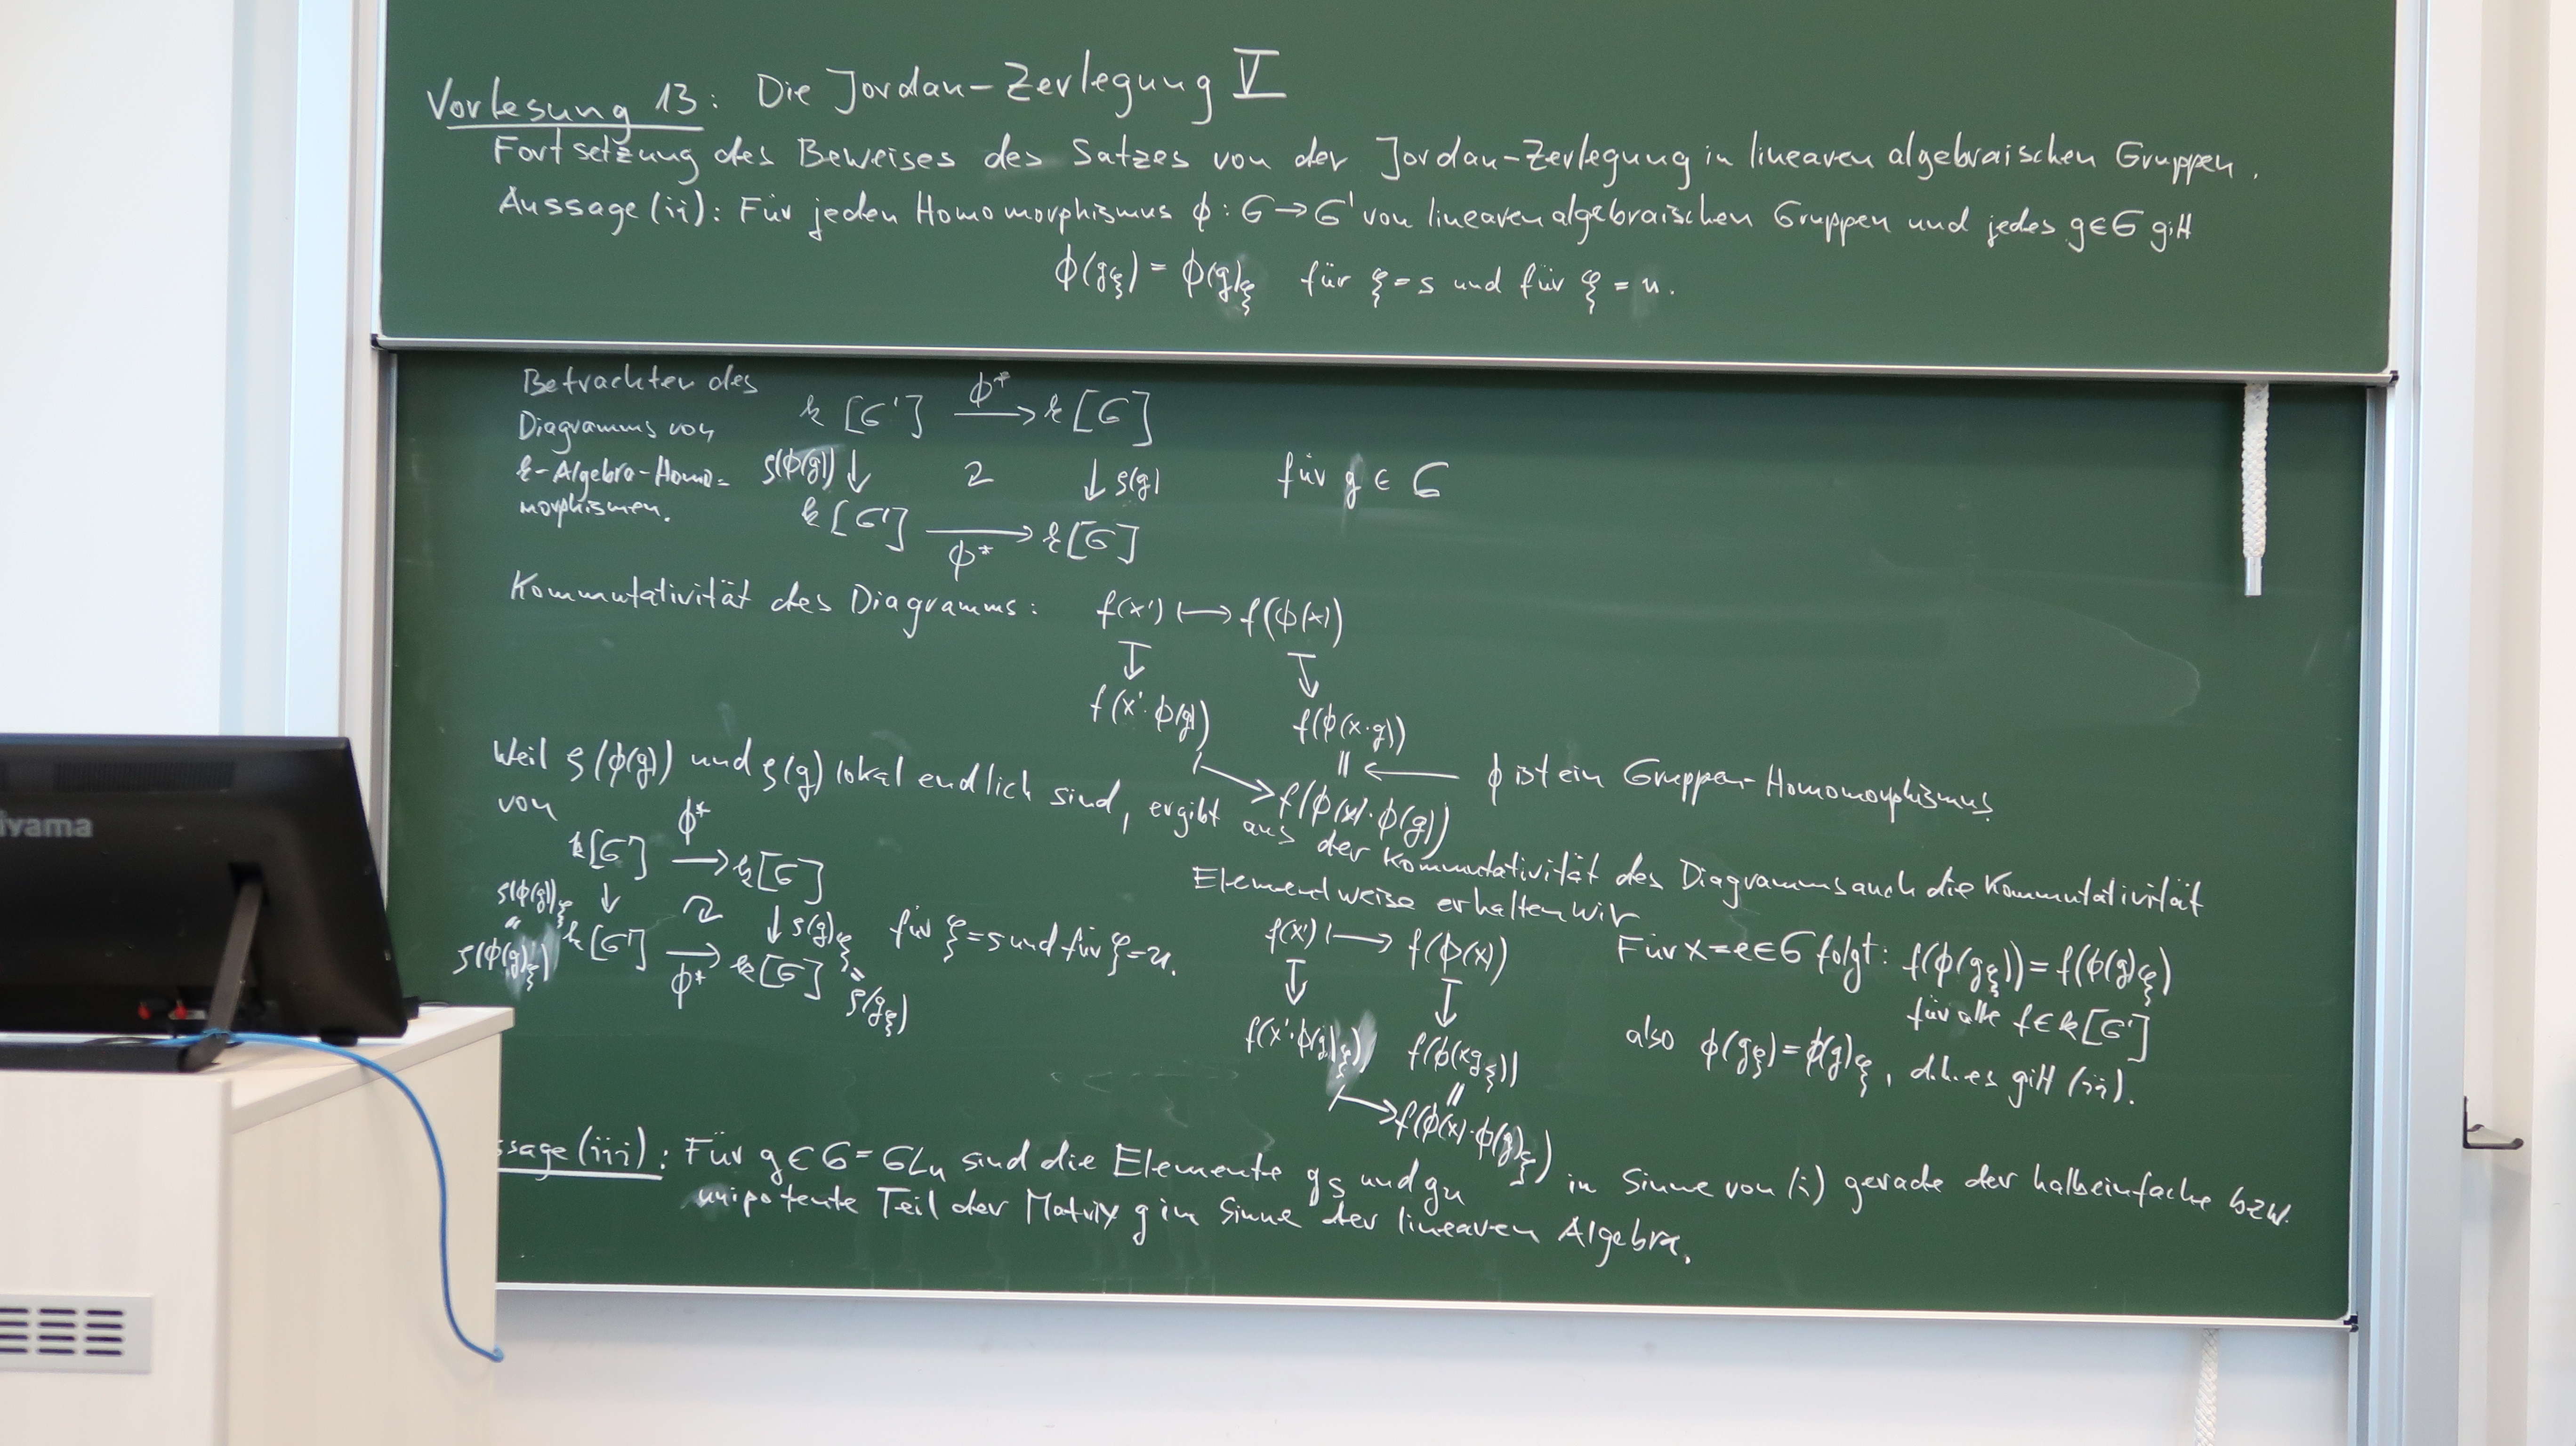 Vorlesung 13: Die Jordan-Zerlegung V
Fortsetzung des Beweises des Satzes von der Jordan-Zerlegung in linearen algebraischen Gruppen.
Aussage (ii): Für jeden Homomorphismus ϕ: G → G' von linearen algebraischen Gruppen und jedes g∈G gilt
ϕ(g_ξ) = ϕ(g)_ξ für ξ=s und für ξ=u.
Betrachten des
Diagramms von
k-Algebra-Homo=
morphismen.
k[G'] —ϕ*→ k[G]
ρ(ϕ(g)) ↓ ↻ ↓ ρ(g) für g ∈ G
k[G'] —ϕ*→ k[G]
Kommutativität des Diagramms: f(x') ↦ f(ϕ(x))
↧ ↧
f(x'·ϕ(g)) f(ϕ(x·g))
‖ ← ϕ ist ein Gruppen-Homomorphismus.
↦ f(ϕ(x)·ϕ(g))
Weil ρ(ϕ(g)) und ρ(g) lokal endlich sind, ergibt aus der Kommutativität des Diagramms auch die Kommutativität
von
k[G'] —ϕ*→ k[G]
ρ(ϕ(g))_ξ ↓ ↻ ↓ ρ(g)_ξ für ξ=s und für ξ=u.
k[G'] —ϕ*→ k[G]
"
ρ(ϕ(g)_ξ)
"
ρ(g_ξ)
Elementweise erhalten wir
f(x') ↦ f(ϕ(x))
↧ ↧
f(x'·ϕ(g)_ξ) f(ϕ(xg_ξ))
‖
↦ f(ϕ(x)·ϕ(g)_ξ)
Für x=e∈G folgt: f(ϕ(g_ξ)) = f(ϕ(g)_ξ)
für alle f∈k[G']
also ϕ(g_ξ)=ϕ(g)_ξ, d.h. es gilt (ii).
ssage (iii): Für g∈G=GL_n sind die Elemente g_s und g_u in Sinne von (i) gerade der halbeinfache bzw.
unipotente Teil der Matrix g im Sinne der linearen Algebra.
iyama